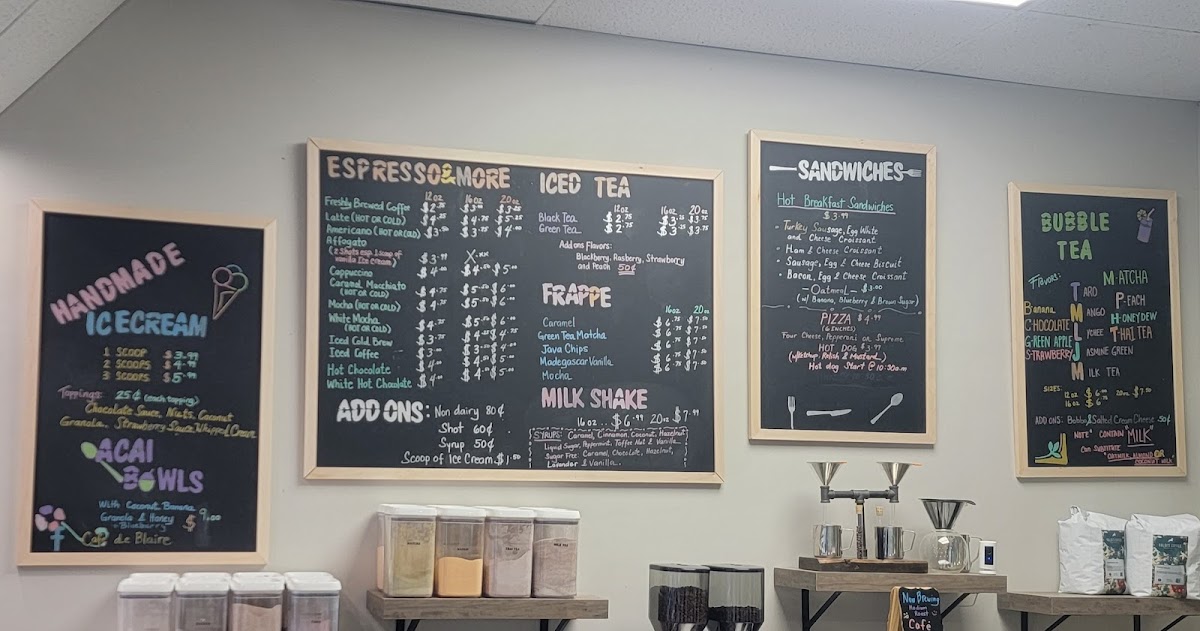 HANDMADE
ICECREAM
1 SCOOP $3.99
2 SCOOPS $4.99
3 SCOOPS $5.99
Toppings: 25¢ (each topping)
Chocolate Sauce, Nuts, Coconut
Granola.. Strawberry Sauce, Whipped Cream
ACAI
BOWLS
With Coconut, Banana
Granola & Honey
+ Blueberry $9.00
Café de Blaire
ESPRESSO & MORE
12oz 16oz 20oz
Freshly Brewed Coffee
Latte (HOT OR COLD)
Americano (HOT OR COLD)
Affogato
(2 Shots esp. 1 scoop of
vanilla Ice Cream) $3.99
Cappuccino
Caramel Macchiato
(HOT OR COLD)
Mocha (HOT OR COLD)
White Mocha
(HOT OR COLD)
Iced Cold Brew
Iced Coffee
Hot Chocolate
White Hot Chocolate
ADD ONS: Non dairy 80¢
Shot 60¢
Syrup 50¢
Scoop of Ice Cream $1.50
ICED TEA
12oz 16oz 20oz
Black Tea $2.75 $3.25 $3.75
Green Tea $2.75 $3.25 $3.75
Add ons Flavors:
Blackberry, Rasberry, Strawberry
and Peach 50¢
FRAPPE
16oz 20oz
Caramel $6.75 $7.50
Green Tea Matcha $6.75 $7.50
Java Chips $6.75 $7.50
Madagascar Vanilla $6.75 $7.50
Mocha $6.75 $7.50
MILK SHAKE
16oz.. $6.99 20oz $7.99
SYRUPS: Caramel, Cinnamon, Coconut, Hazelnut
Liquid Sugar, Peppermint, Toffee Nut & Vanilla..
Sugar Free: Caramel, Chocolate, Hazelnut,
Lavander & Vanilla..
SANDWICHES
Hot Breakfast Sandwiches
$3.99
- Turkey Sausage, Egg White
and Cheese Croissant
- Ham & Cheese Croissant
- Sausage, Egg & Cheese Biscuit
- Bacon, Egg & Cheese Croissant
- Oatmeal - $3.00
(w/ Banana, Blueberry & Brown Sugar)
PIZZA $4.99
(6 INCHES)
Four Cheese, Pepperoni or Supreme
HOT DOG $3.99
(w/Ketchup, Relish & Mustard)
Hot dog Start @ 10:30am
BUBBLE
TEA
Flavors:
TARO
MANGO
LYCHEE
JASMINE GREEN
MILK TEA
MATCHA
PEACH
HONEYDEW
THAI TEA
BANANA
CHOCOLATE
GREEN APPLE
STRAWBERRY
SIZES:
12oz $6.00 20oz $7.50
16oz $6
ADD ONS: Boba & Salted Cream Cheese 50¢
NOTE* CONTAIN MILK
Can SUBSTITUTE
OATMILK, ALMOND OR
COCONUT MILK
THAI TEA
MILK TEA
Now Brewing
Medium
Roast
Café